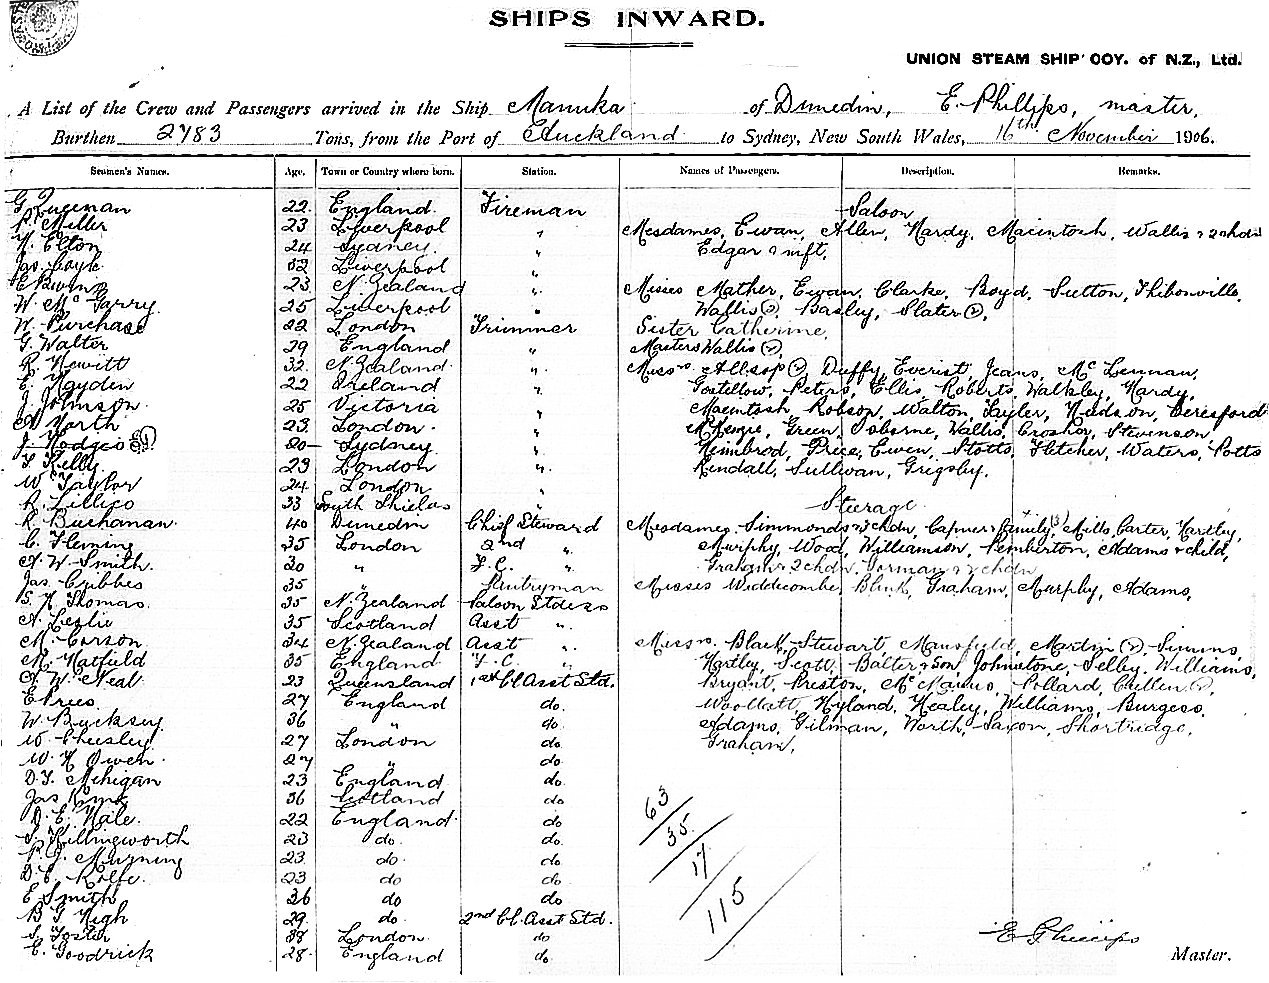 SHIPS INWARD.
UNION STEAM SHIP COY. of N.Z., Ltd.
A List of the Crew and Passengers arrived in the Ship Manuka of Dunedin, E. Phillips, master,
Burthen 2783 Tons, from the Port of Auckland to Sydney, New South Wales, 16th November 1906.
Seamen's Names. Age. Town or Country where born. Station. Names of Passengers. Description. Remarks.
22 England Fireman
Saloon
Miller 23 Liverpool "
Mesdames, Ewan, Allen, Hardy, Macintosh, Wallis & 2 chdn
Elton 24 Sydney "
Edgar & inft.
Jas. Coyle 32 Liverpool "
23 N. Zealand "
Misses Mather, Ewan, Clarke, Boyd, Sutton, Thibonville,
W. McGarry 25 Liverpool "
Wallis (2), Basley, Slater (2),
W. Purchase 22 London Trimmer
Sister Catherine,
G. Walter 29 England "
Masters Wallis (2),
R. Hewitt 32 N. Zealand "
Messrs Allsop (2), Duffy, Everist, Jeans, McLennan,
E. Hayden 22 Ireland "
Gostellow, Peters, Ellis, Roberts, Walkley, Hardy,
J. Johnson 25 Victoria "
Macintosh, Robson, Walton, Tayler, Hudson, Beresford
North 23 London "
McKenzie, Green, Osborne, Wallis, Crosher, Stevenson,
J. Hodges 20 Sydney "
Nimbrod, Price, Ewen, Stotts, Fletcher, Waters, Potts
Kelly 23 London "
Kendall, Sullivan, Grigsby.
W. Taylor 24 London "
R. Lillico 33 South Shields "
Steerage
R. Buchanan 40 Dunedin Chief Steward
Mesdames Simmonds & 3 chdn, & family (3), Mills, Carter, Hartley,
C. Fleming 35 London 2nd "
Murphy, Wood, Williamson, Pemberton, Adams & child,
A. W. Smith 20 " F.C. "
Graham & 2 chdn, Gorman & 2 chdn
Jas. Cubbes 35 " Pantryman
Misses Widdicombe, Blink, Graham, Murphy, Adams,
S. H. Thomas 35 N. Zealand Saloon Stdess
A. Leslie 35 Scotland Asst "
M. Carson 34 N. Zealand Asst "
Messrs Black, Stewart, Mansfield, Martin (2), Simms,
M. Hatfield 35 England F.C. "
Hartley, Scott, Balter & Son, Johnstone, Selby, Williams,
A. W. Neal 23 Queensland 1st Cl Asst Std.
Bryant, Preston, McManus, Pollard, Cullen (2),
E. Rees 27 England do.
Woollatt, Hyland, Healey, Williams, Burgess,
W. Bucksey 36 " do.
Adams, Gilman, North, Saxon, Shortridge,
W. Cheesley 27 London do
Graham,
W. H. Owen 27 " do.
D. J. Mehigan 23 England do.
Jas King 36 Scotland do
D. E. Hale 22 England do
S. Killingworth 23 do. do
P. J. Murning 23 do do.
D. C. Rolfe 23 do do
E. Smith 36 do do
B. G. High 29 do. 2nd Cl. Asst Std.
S. Foster 38 London do
E. Goodrick 28 England do.
63
35
17
115
E Phillips
Master.